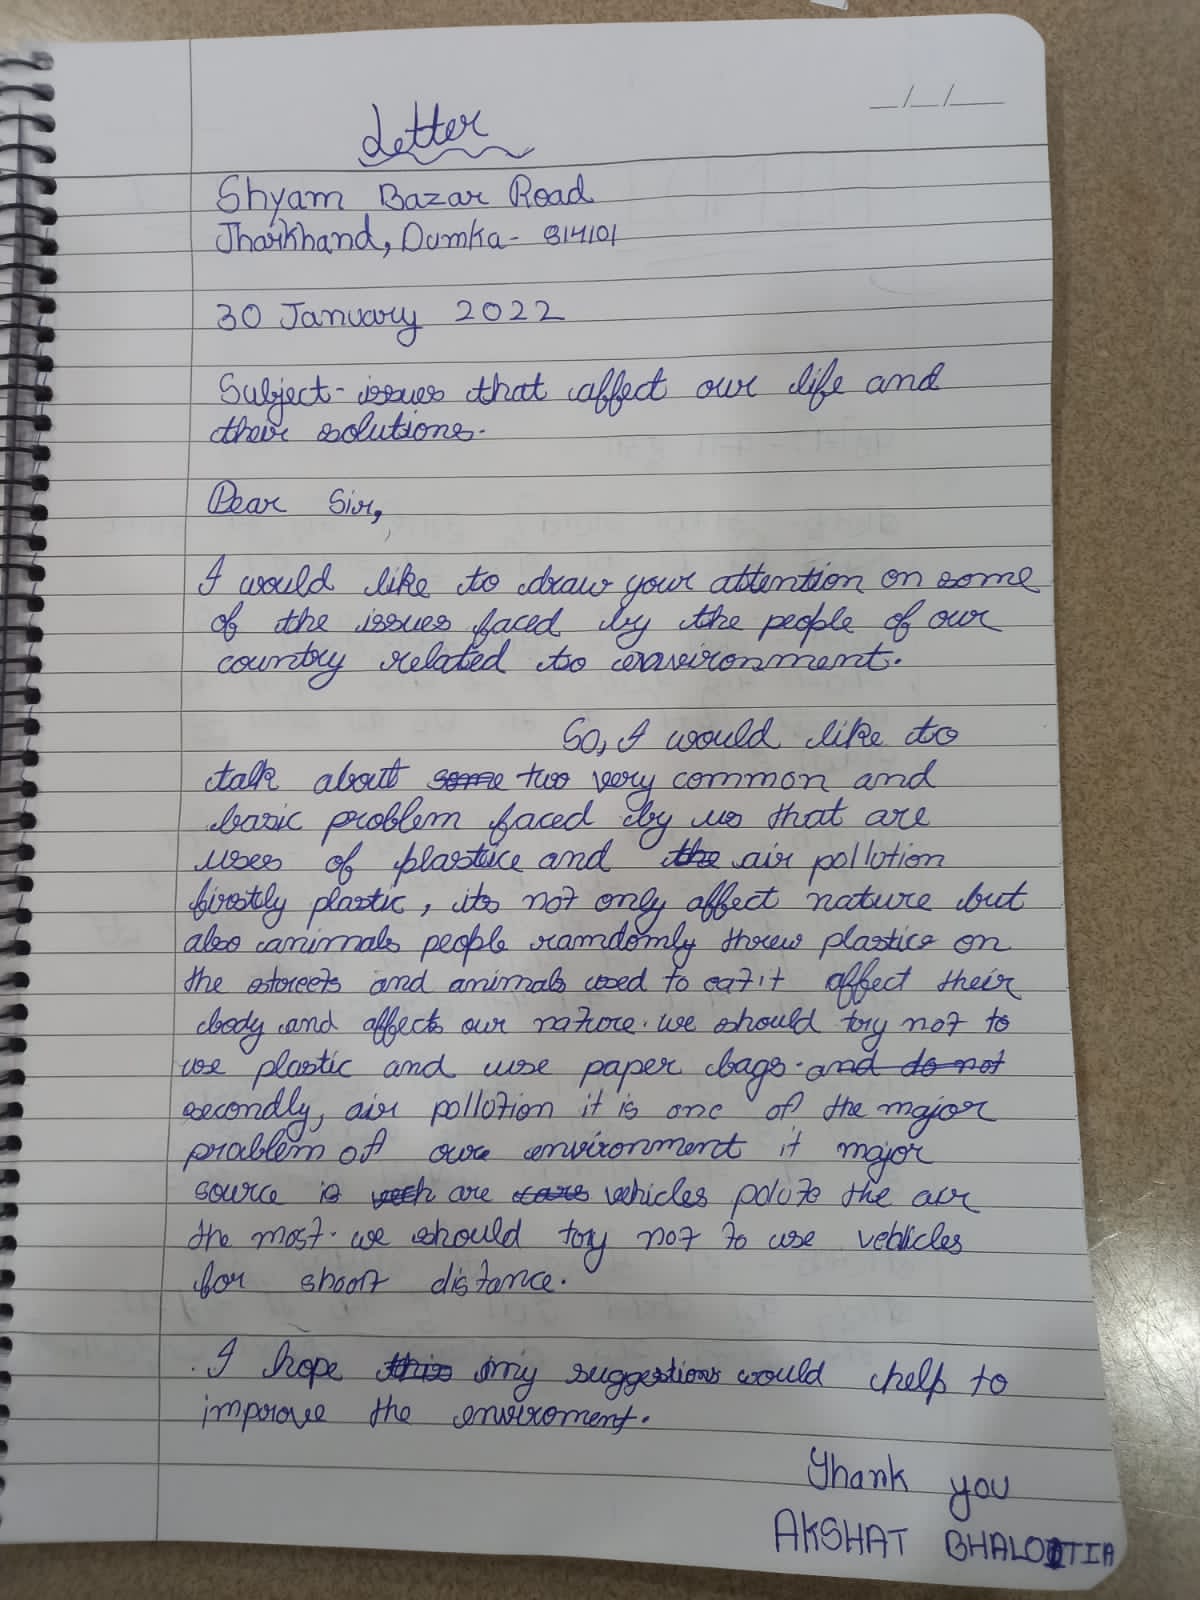 __/__/____
Letter
Shyam Bazar Road
Jharkhand, Dumka - 814101
30 January 2022
Subject - issues that affect our life and
their solutions.
Dear Sir,
I would like to draw your attention on some
of the issues faced by the people of our
country related to environment.
So, I would like to
talk about some two very common and
basic problem faced by us that are
uses of plastice and the air pollution
firstly plastic, its not only affect nature but
also animals people ramdomly threw plastics on
the streets and animals used to eat it affect their
body and affects our nature. we should try not to
use plastic and use paper bags. and do not
secondly, air pollution it is one of the major
problem of our environment it major
source is are cars vehicles polute the air
the most. we should try not to use vehicles
for short distance.
I hope this my suggestions would help to
improve the enviroment.
Thank you
AKSHAT BHALOTIA